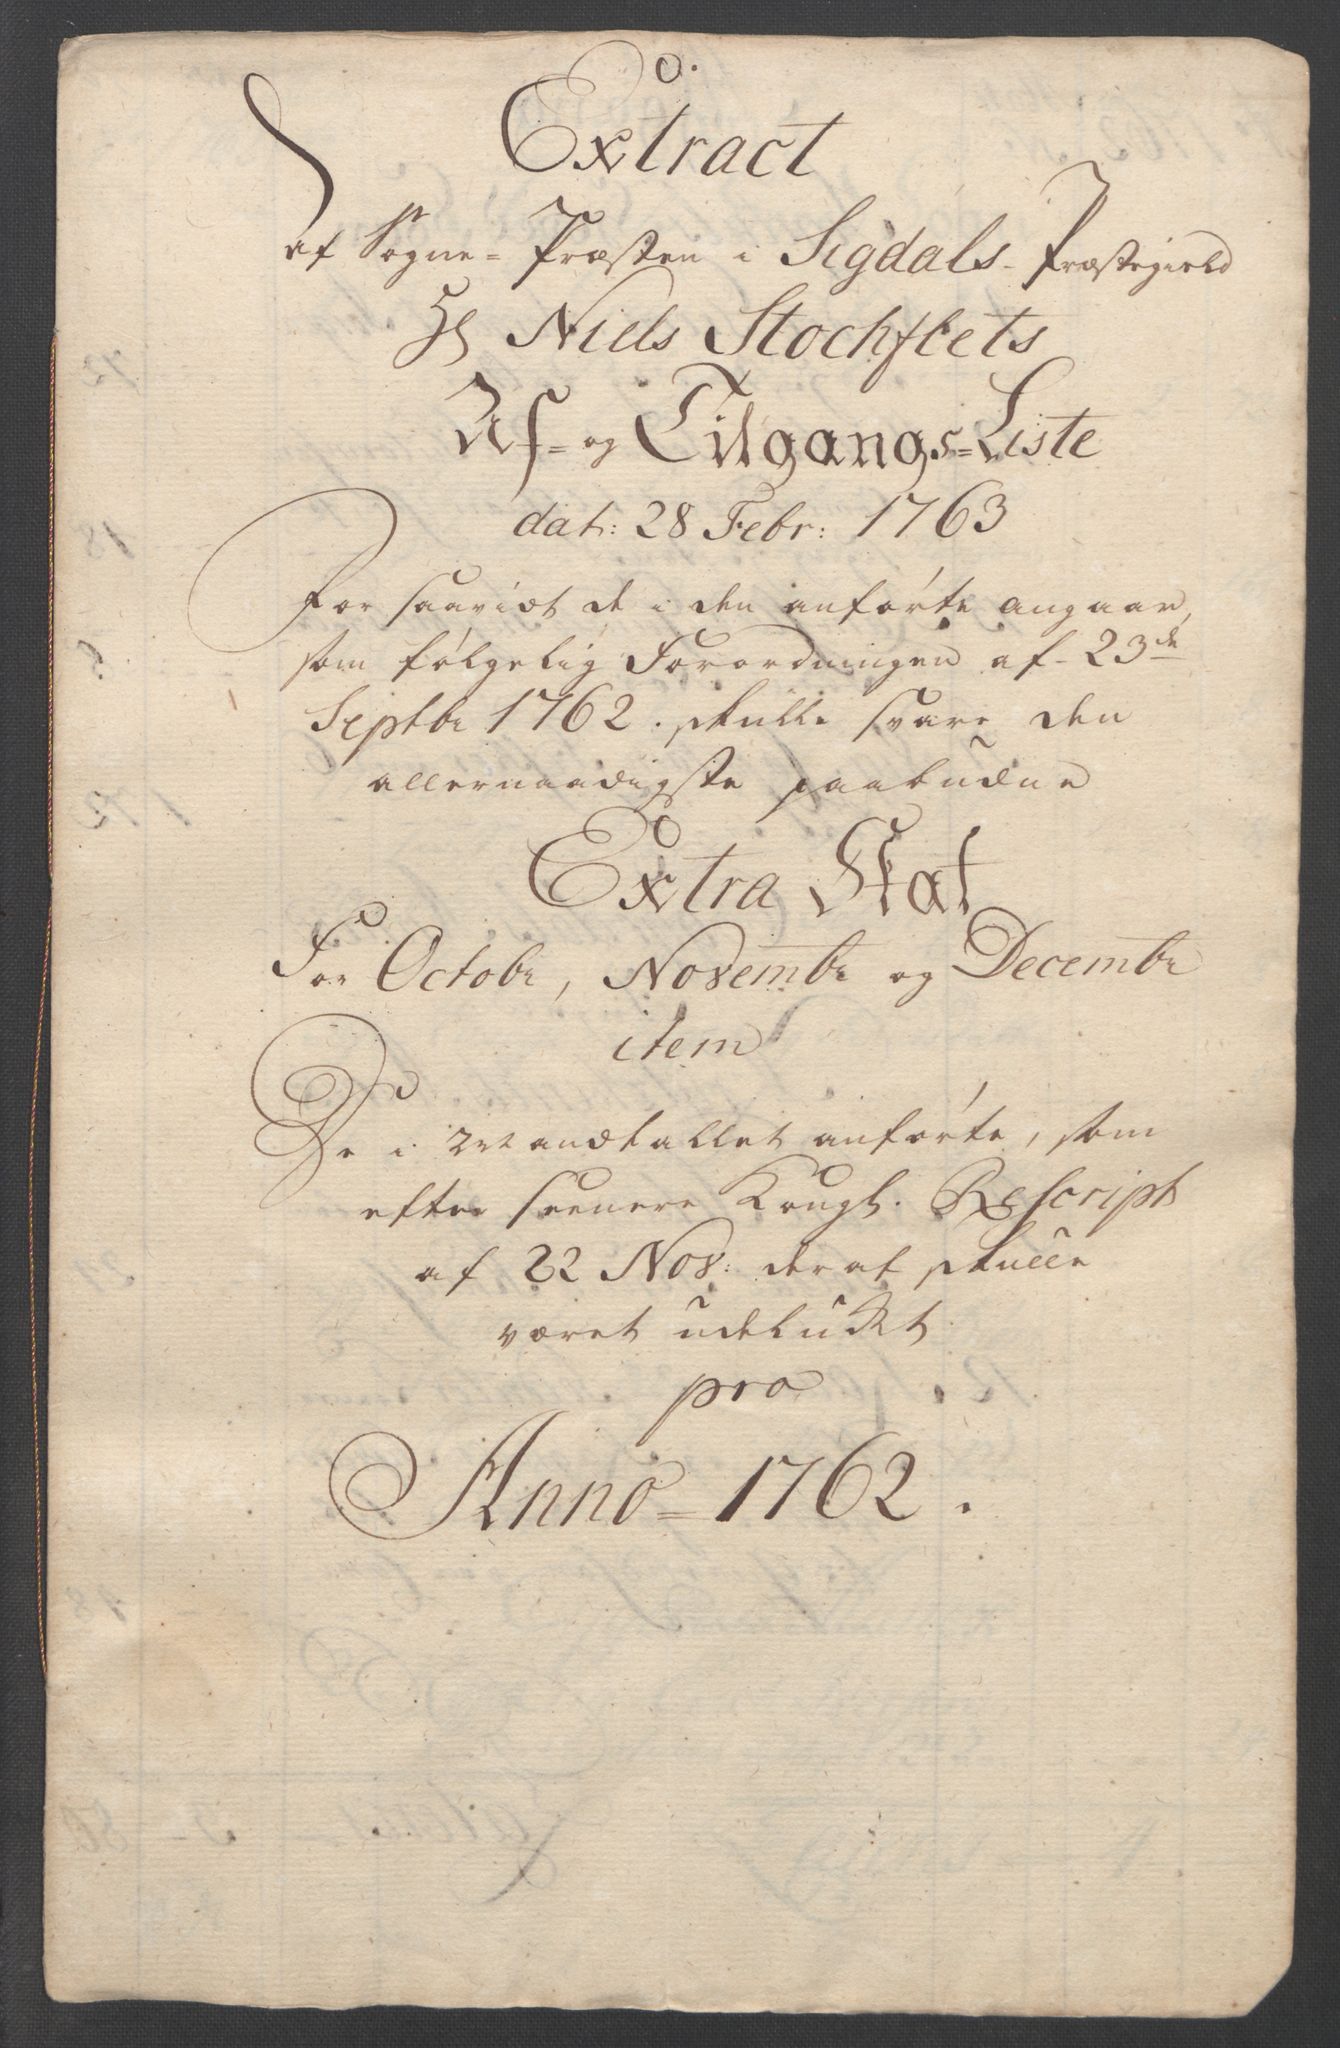 Extract
af Sogne=Præsten i Sigdals Præstegield
Hr Niels Stochflets
Af= og Tilgangs=Liste
dat: 28 Febr: 1763
For saavidt de i den anførte angaar,
som følgelig Forordningen af 23de
Septbr 1762. skulle svare den
allernaadigste paabudne
Extra Skat
For Octobr, Novembr og Decembr
item
De i Mandtallet anførte, som
efter seenere Kongl. Rescript
af 22 Nov: derat skulle
været udelukt
pro
Anno = 1762.